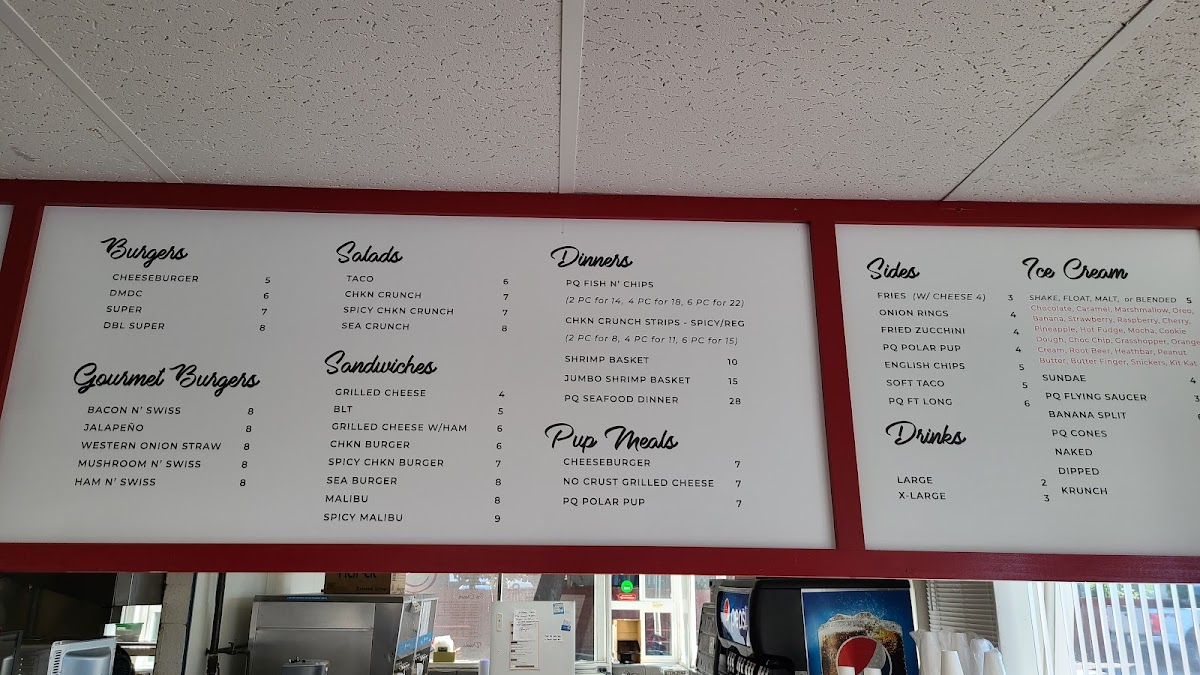 Burgers
CHEESEBURGER 5
DMDC 6
SUPER 7
DBL SUPER 8
Gourmet Burgers
BACON N' SWISS 8
JALAPEÑO 8
WESTERN ONION STRAW 8
MUSHROOM N' SWISS 8
HAM N' SWISS 8
Salads
TACO 6
CHKN CRUNCH 7
SPICY CHKN CRUNCH 7
SEA CRUNCH 8
Sandwiches
GRILLED CHEESE 4
BLT 5
GRILLED CHEESE W/HAM 6
CHKN BURGER 6
SPICY CHKN BURGER 7
SEA BURGER 8
MALIBU 8
SPICY MALIBU 9
Dinners
PQ FISH N' CHIPS
(2 PC for 14, 4 PC for 18, 6 PC for 22)
CHKN CRUNCH STRIPS - SPICY/REG
(2 PC for 8, 4 PC for 11, 6 PC for 15)
SHRIMP BASKET 10
JUMBO SHRIMP BASKET 15
PQ SEAFOOD DINNER 28
Pup Meals
CHEESEBURGER 7
NO CRUST GRILLED CHEESE 7
PQ POLAR PUP 7
Sides
FRIES (W/ CHEESE 4) 3
ONION RINGS 4
FRIED ZUCCHINI 4
PQ POLAR PUP 4
ENGLISH CHIPS 5
SOFT TACO 5
PQ FT LONG 6
Drinks
LARGE 2
X-LARGE 3
Ice Cream
SHAKE, FLOAT, MALT, or BLENDED 5
Chocolate, Caramel, Marshmallow, Oreo,
Banana, Strawberry, Raspberry, Cherry,
Pineapple, Hot Fudge, Mocha, Cookie
Dough, Choc Chip, Grasshopper, Orange
Cream, Root Beer, Heathbar, Peanut
Butter, Butter Finger, Snickers, Kit Kat
SUNDAE 4
PQ FLYING SAUCER 3
BANANA SPLIT
PQ CONES
NAKED
DIPPED
KRUNCH
pepsi